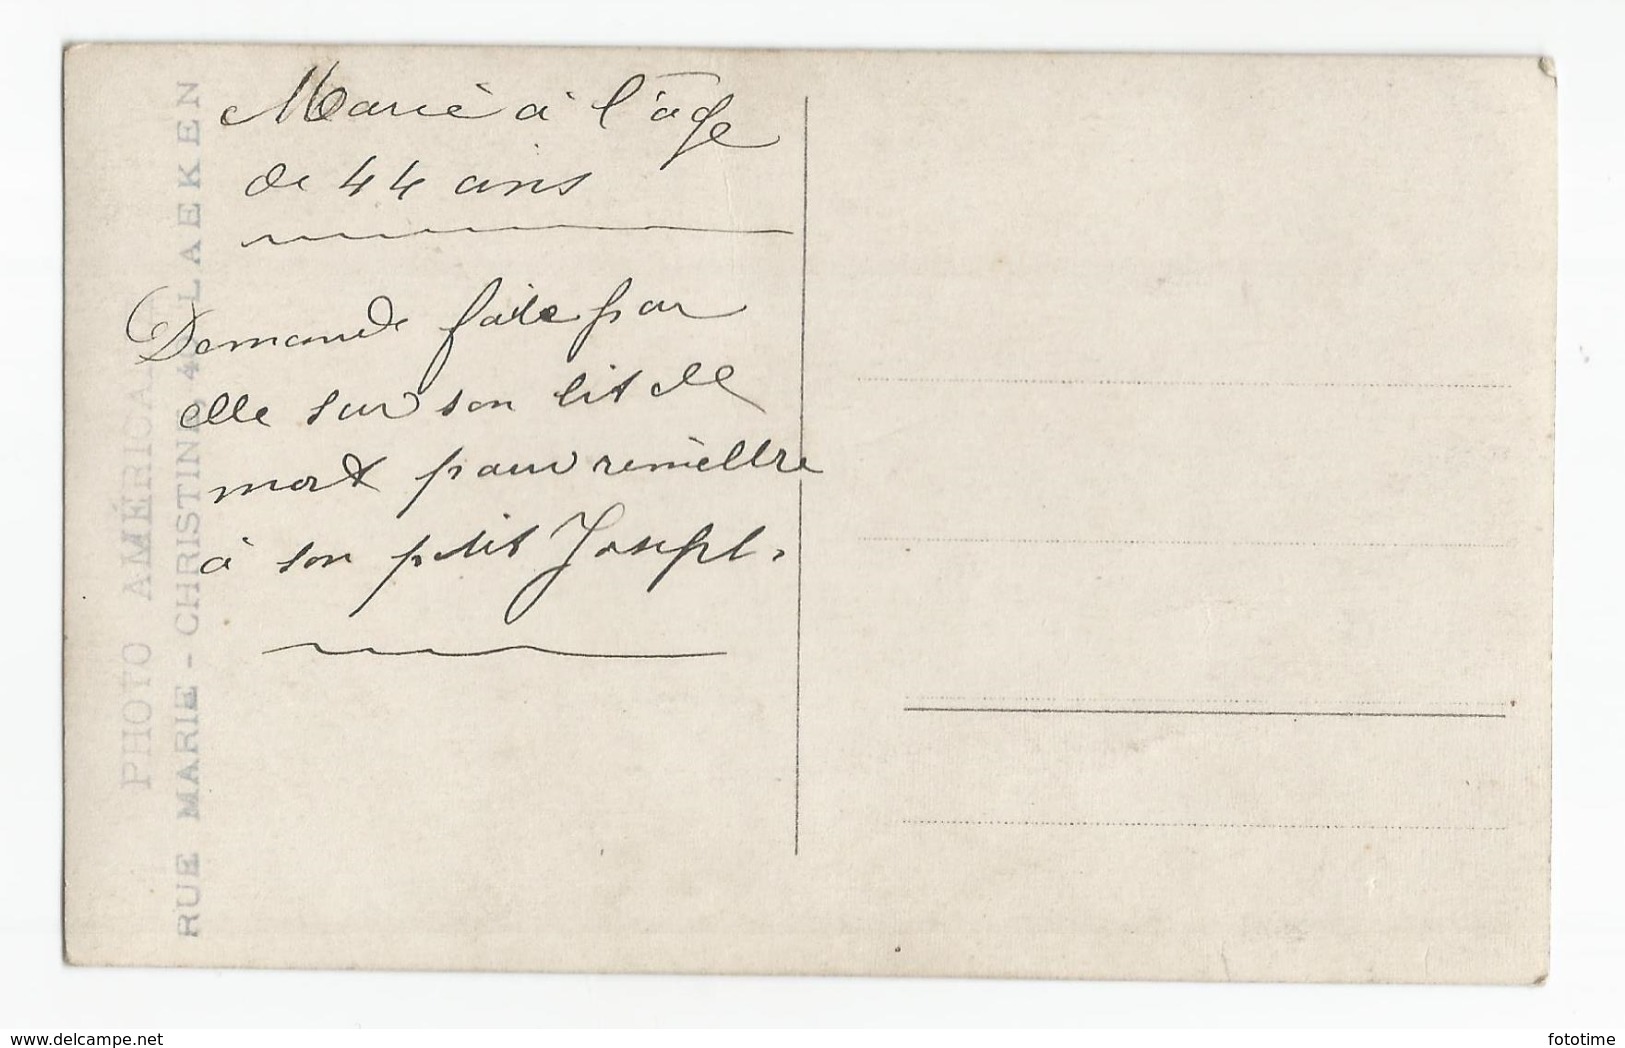 Marie à l'âge
de 44 ans
Demande faite par
elle sur son lit de
mort pour remettre
à son ptit Joseph.
PHOTO AMÉRICA
RUE MARIE - CHRISTINE, 4 LAEKEN
www.delcampe.net
fototime